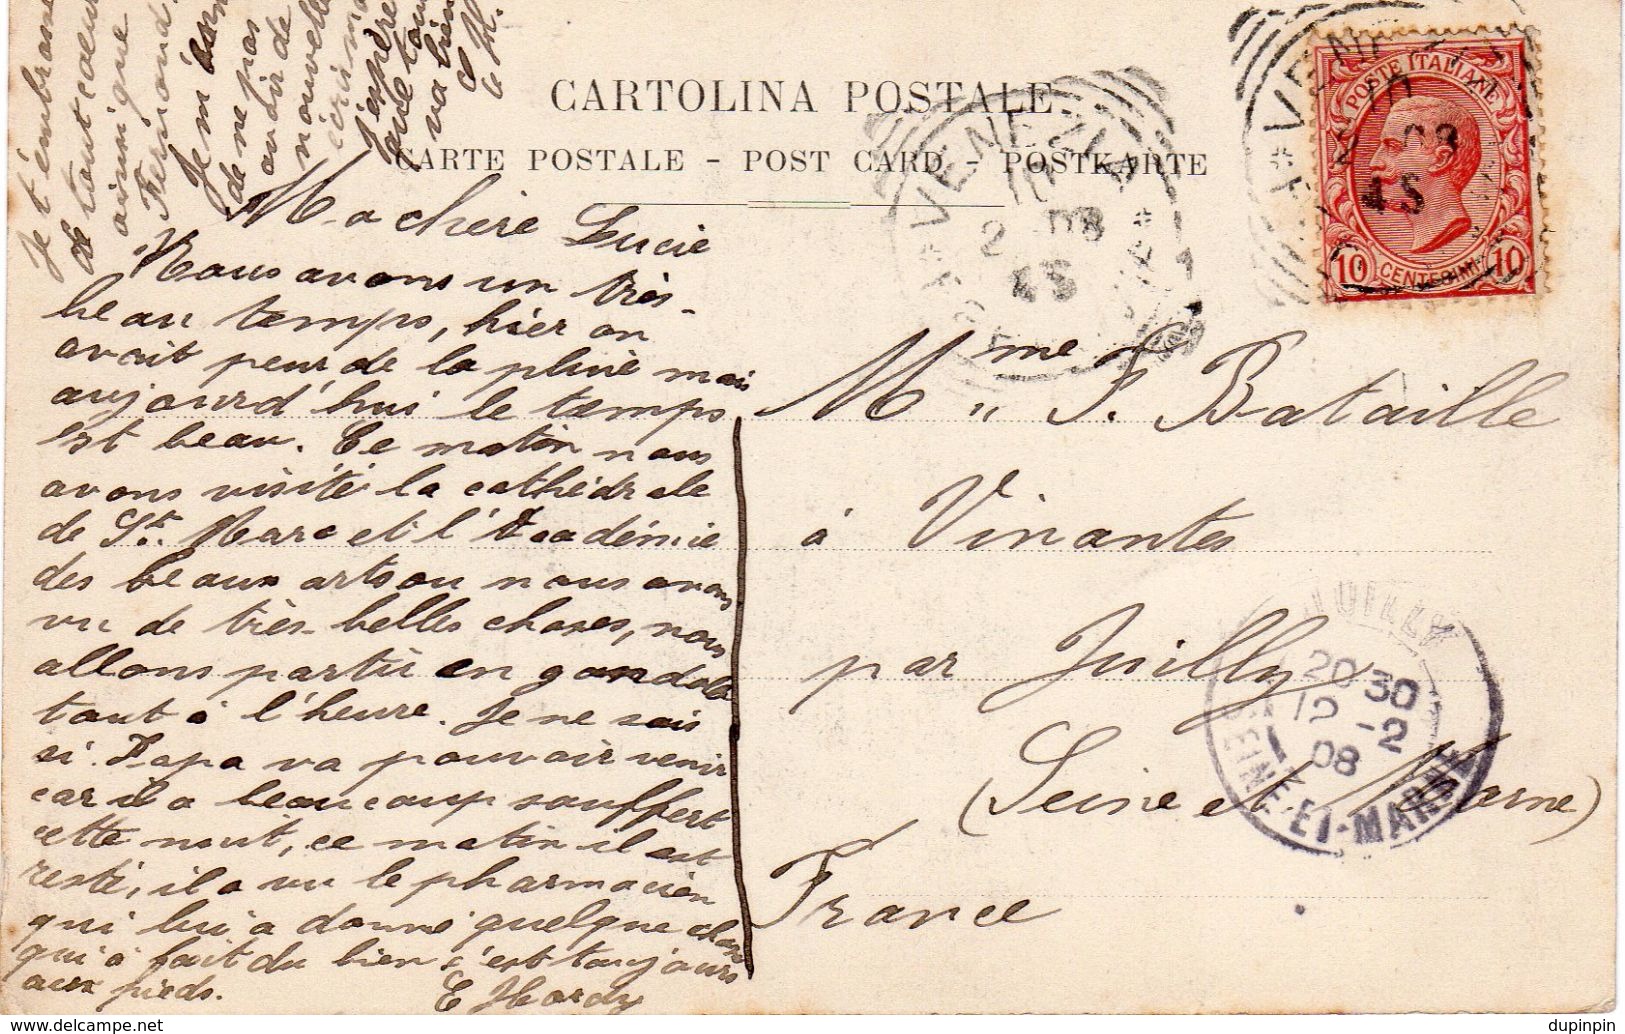 CARTOLINA POSTALE
CARTE POSTALE - POST CARD - POSTKARTE
POSTE ITALIANE
10 CENTESIMI 10
VENEZIA
10
2 08
4S
Ma chère Lucie
Nous avons un très-
beau temps, hier on
avait peur de la pluie mais
aujourd'hui le temps
est beau. Ce matin nous
avons visité la cathédrale
de St. Marc et l'Académie
des beaux arts ou nous avons
vu de très-belles choses, nous
allons partir en gondole
tout à l'heure. Je ne sais
si Papa va pouvoir venir
car il a beaucoup souffert
cette nuit, ce matin il est
resté, il a vu le pharmacien
qui lui a donné quelque chose
qui a fait du bien c'est toujours
aux pieds.
E Hardy
Je t'embrasse
de tout coeur
ainsi que
Fernand
Je m'
de ne pas
avoir de
nouvelles
J'espère
que tout
va bien
Mme " F. Bataille
à Vinantes
par Juilly
(Seine et Marne)
France
JUILLY
20 30
12 -2
08
SEINE-ET-MARNE
www.delcampe.net
dupinpin